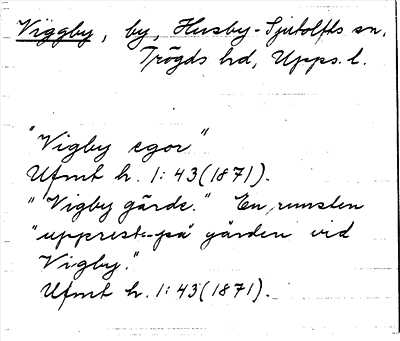 Viggby, by, Husby-Sjutolfts sn,
Trögds hd, Upps. l.
"Vigby egor"
Ufmt h. 1:43 (1871).
"Vigby gärde." En runsten
"upprest på gården vid
Vigby."
Ufmt h. 1:43 (1871).